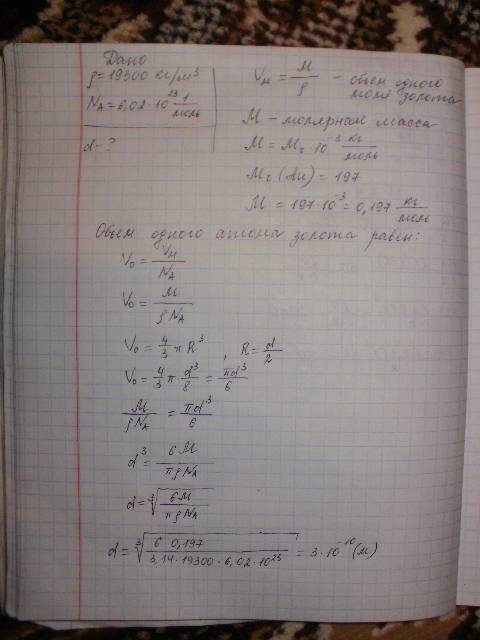 Дано
ρ=19300 кг/м³
N_A=6,02·10²³ 1/моль
d-?
V_м = M/ρ - объем одного моля золота
M - молярная масса
M = M_r·10⁻³ кг/моль
M_r (Au) = 197
M = 197·10⁻³ = 0,197 кг/моль
Объем одного атома золота равен:
V₀ = V_м/N_A
V₀ = M/ρN_A
V₀ = 4/3 π R³, R = d/2
V₀ = 4/3 π d³/8 = πd³/6
M/ρN_A = πd³/6
d³ = 6M/πρN_A
d = ∛(6M/πρN_A)
d = ∛(6·0,197/3,14·19300·6,02·10²³) = 3·10⁻¹⁰(м)